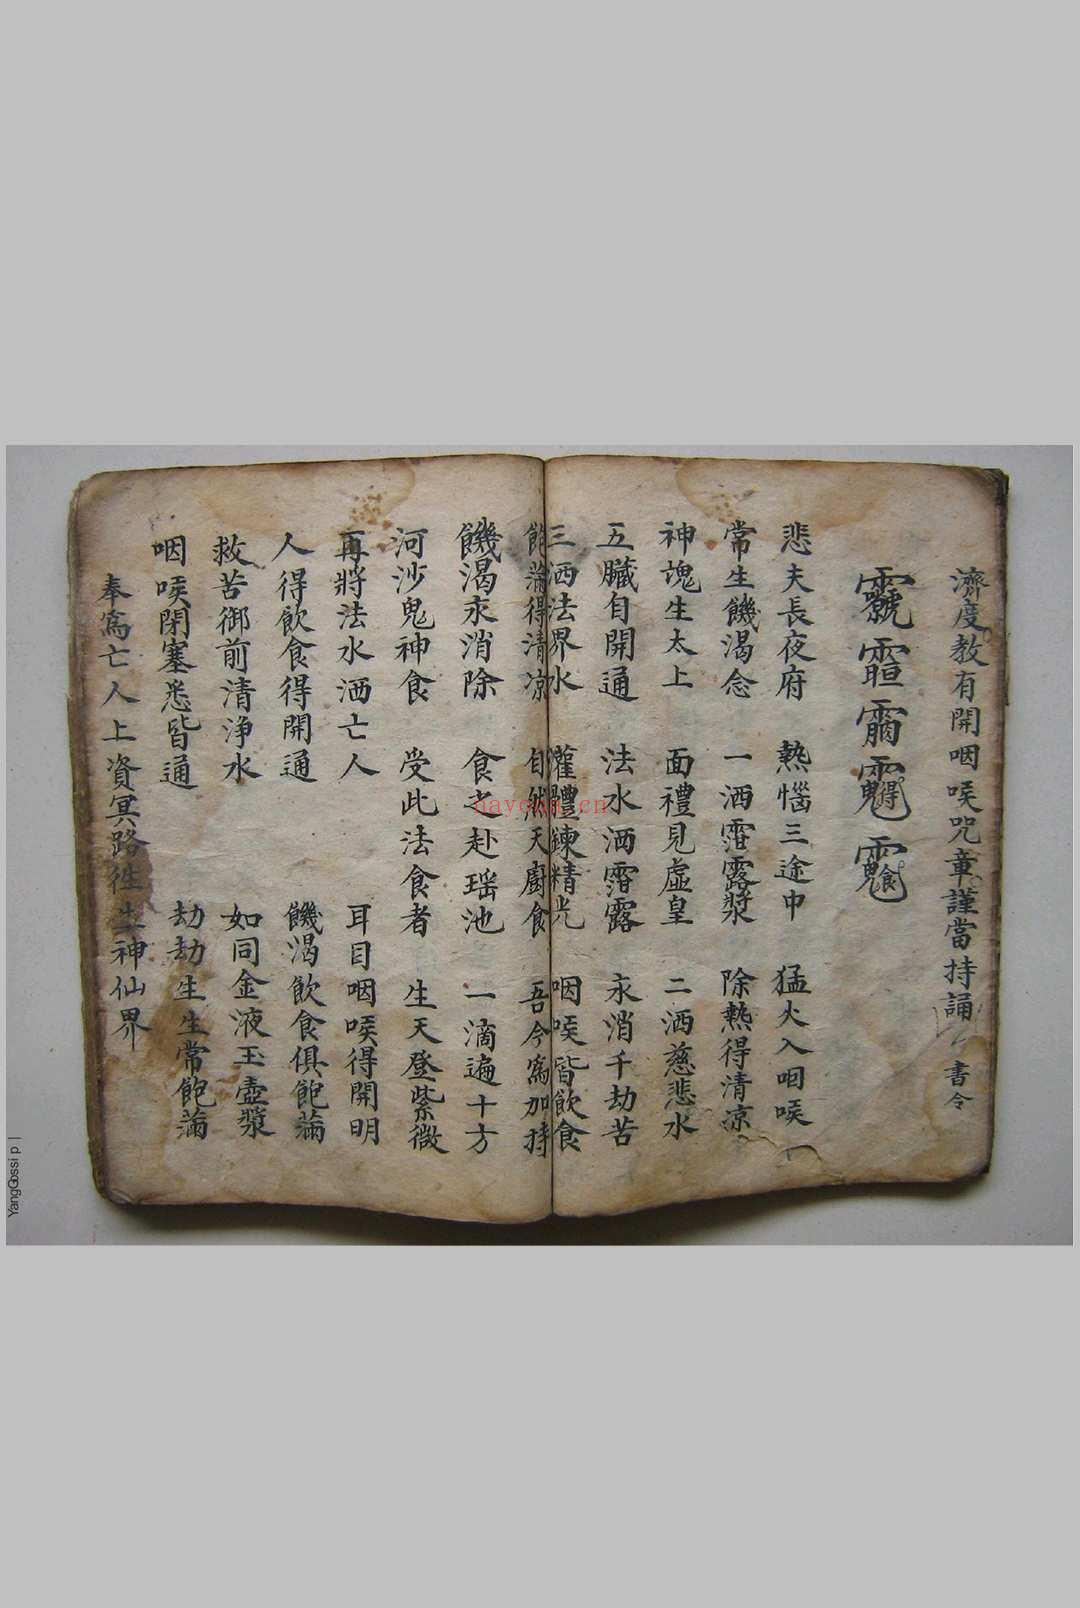 濟度教有開咽喉咒章謹當持誦 書令
悲夫長夜府 熱惱三途中 猛火入咽喉
常生饑渴念 一洒霑露漿 除熱得清凉
神魂生太上 面禮見虛皇 二洒慈悲水
五臟自開通 法水洒霑露 永消千劫苦
三洒法界水 灌體鍊精光 咽喉皆飲食
飽滿得清凉 自然天廚食 吾今為加持
饑渴永消除 食之赴瑶池 一滴遍十方
河沙鬼神食 受此法食者 生天登紫微
再將法水洒亡人 耳目咽喉得開明
人得飲食得開通 饑渴飲食俱飽滿
救苦御前清浄水 如同金液玉壼漿
咽喉閉塞悉皆通 劫劫生生常飽滿
奉爲亡人上資冥路徃生神仙界
YangGossip